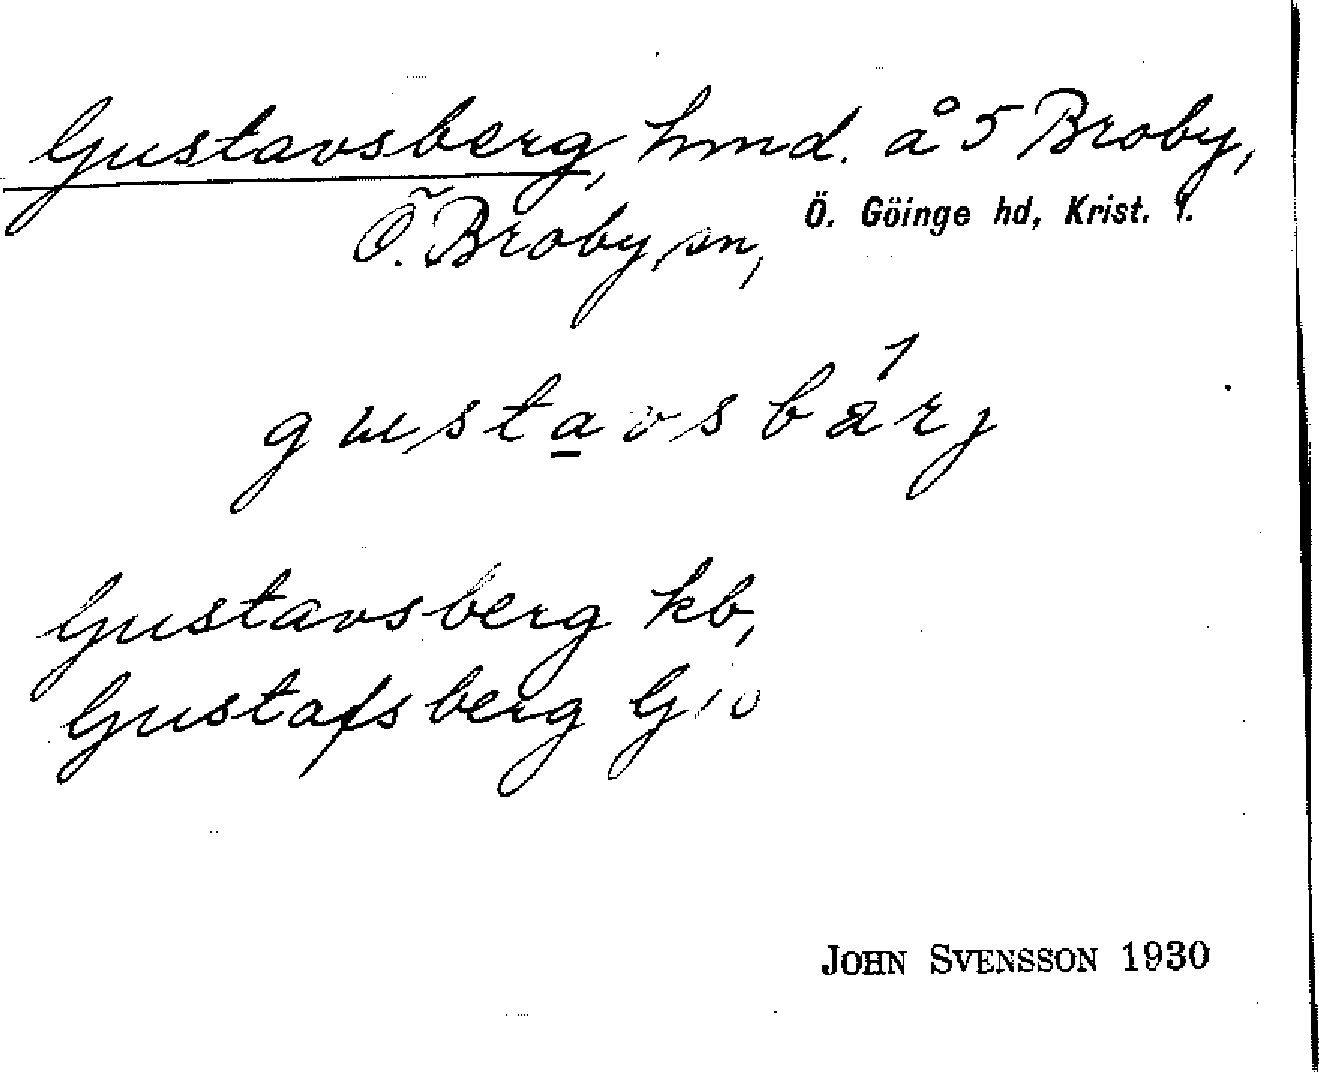 Gustavsberg, hmd. å 5 Broby,
Ö. Broby sn, Ö. Göinge hd, Krist. l.
gustavsbàrj
Gustavsberg kb,
Gustafsberg
JOHN SVENSSON 1930